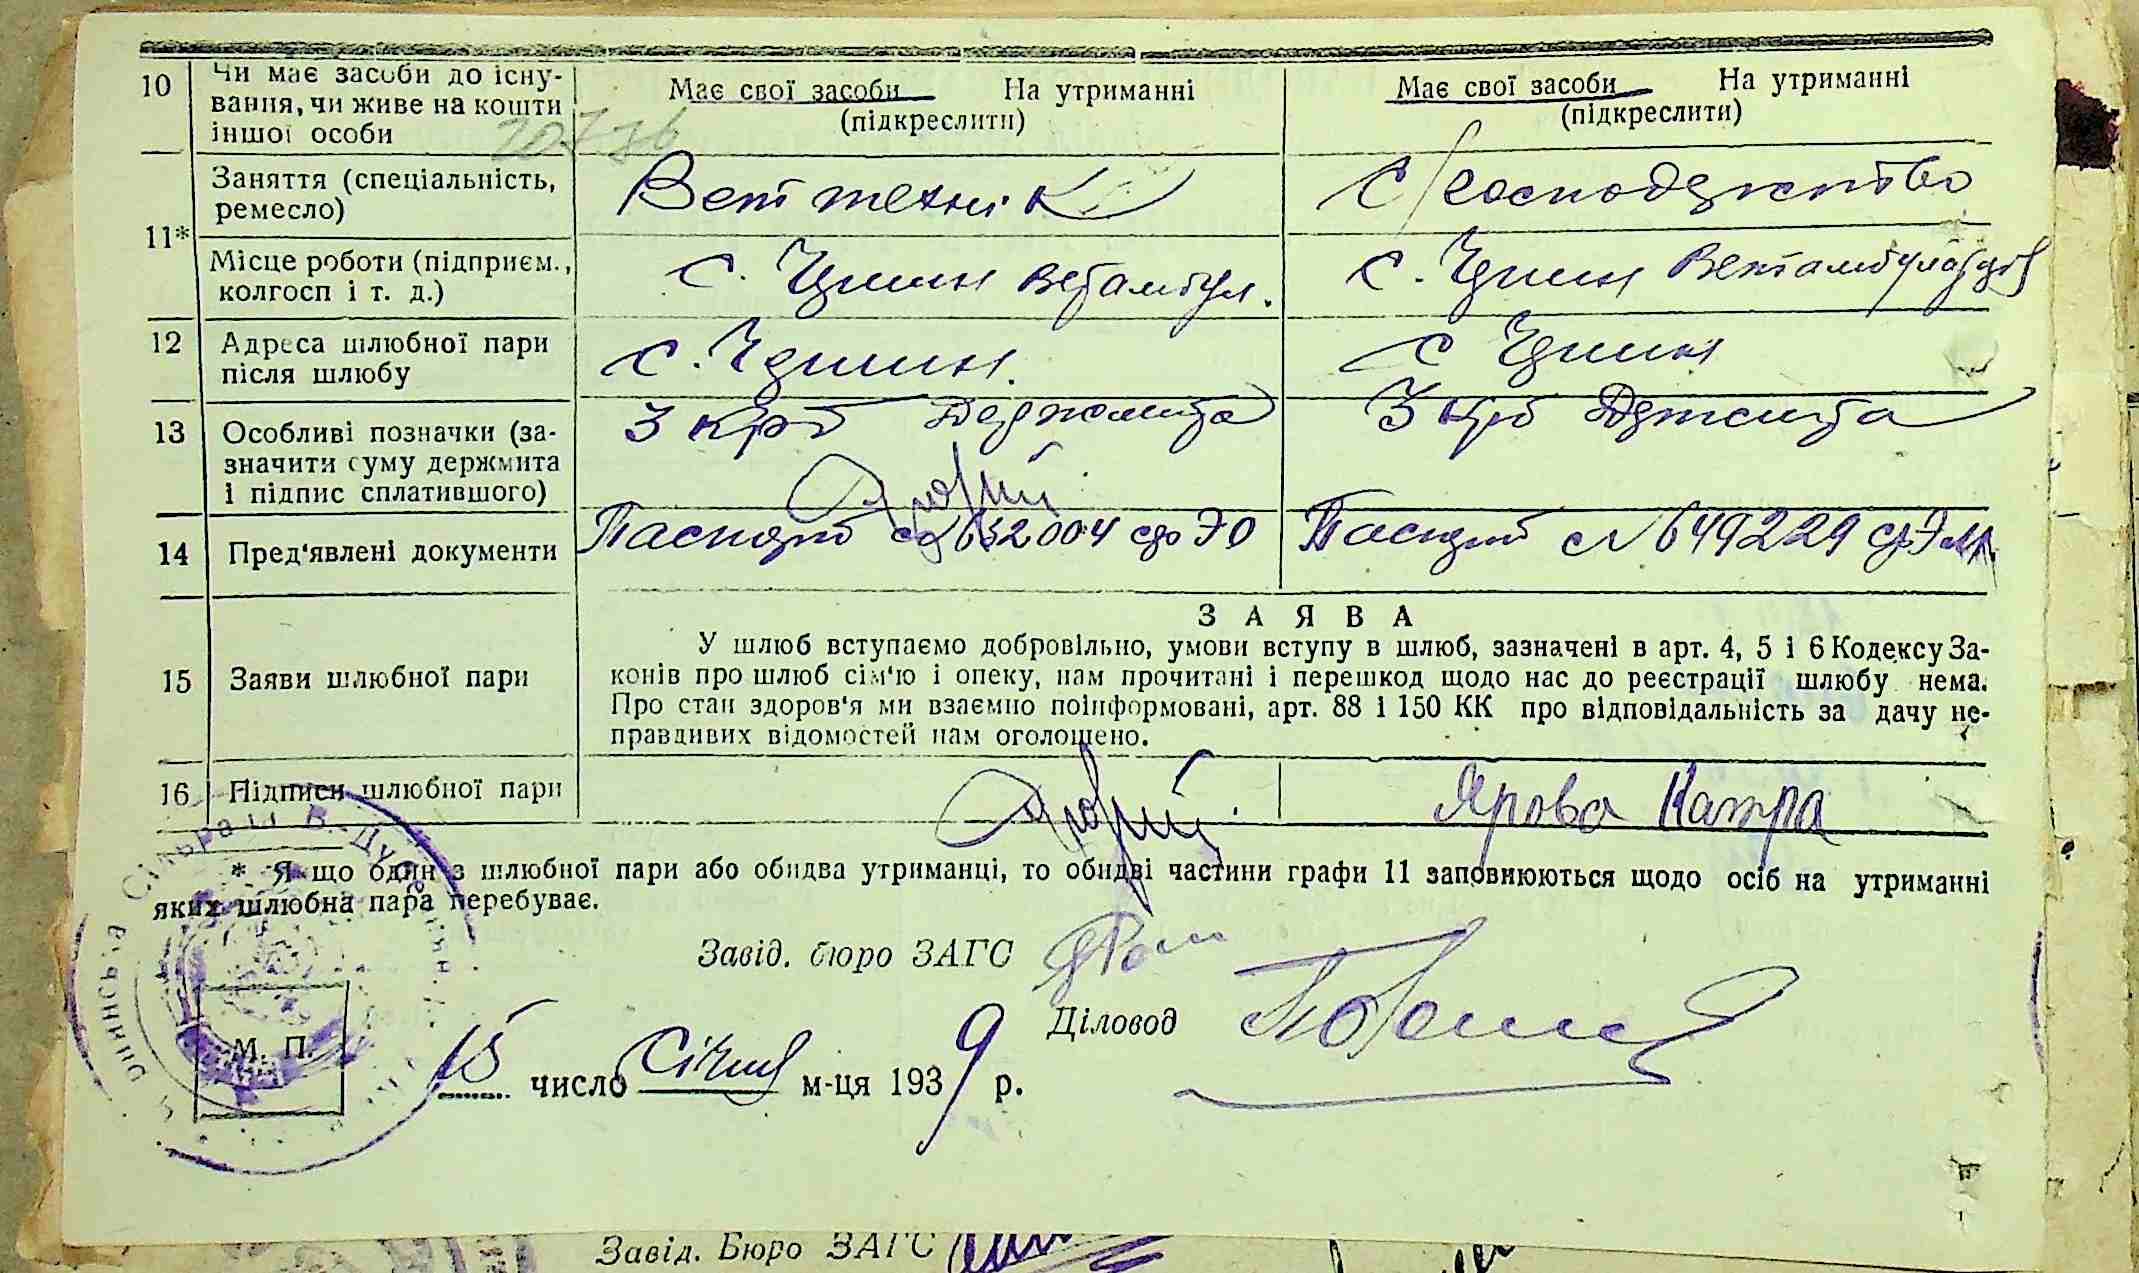 10 Чи має засоби до існу-
вання, чи живе на кошти
іншої особи
Має свої засоби На утриманні
(підкреслити)
Має свої засоби На утриманні
(підкреслити)
11* Заняття (спеціальність,
ремесло)
Ветtechnік
С/господарство
Місце роботи (підприєм.,
колгосп і т. д.)
с. Ветамбул.
с. Ветамбулаторія
12 Адреса шлюбної пари
після шлюбу
с.
с
13 Особливі позначки (за-
значити суму держмита
і підпис сплатившого)
3 крб Держмита
3 крб Держмита
14 Пред'явлені документи
Паспорт 652004
Паспорт с N 649229
15 Заяви шлюбної пари
ЗАЯВА
У шлюб вступаємо добровільно, умови вступу в шлюб, зазначені в арт. 4, 5 і 6 Кодексу За-
конів про шлюб сім'ю і опеку, нам прочитані і перешкод щодо нас до реєстрації шлюбу нема.
Про стан здоров'я ми взаємно поінформовані, арт. 88 і 150 КК про відповідальність за дачу не-
правдивих відомостей нам оголошено.
16 Підписи шлюбної пари
Ярова Катра
* Якщо один з шлюбної пари або обидва утриманці, то обидві частини графи 11 заповнюються щодо осіб на утриманні
яких шлюбна пара перебуває.
Завід. бюро ЗАГС
Діловод
М. П.
15 число Січня м-ця 1939 р.
Завід. Бюро ЗАГС